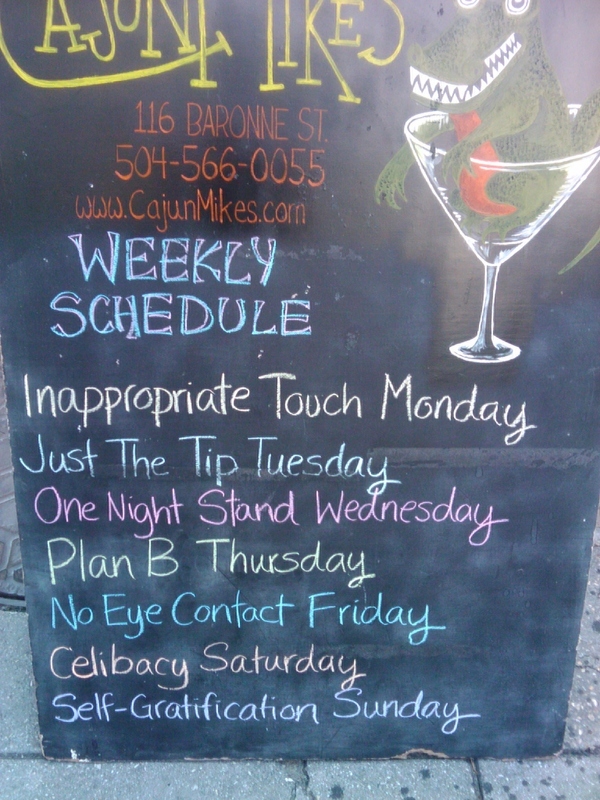 CAJUN MIKES
116 BARONNE ST.
504-566-0055
www.CajunMikes.com
WEEKLY
SCHEDULE
Inappropriate Touch Monday
Just The Tip Tuesday
One Night Stand Wednesday
Plan B Thursday
No Eye Contact Friday
Celibacy Saturday
Self-Gratification Sunday